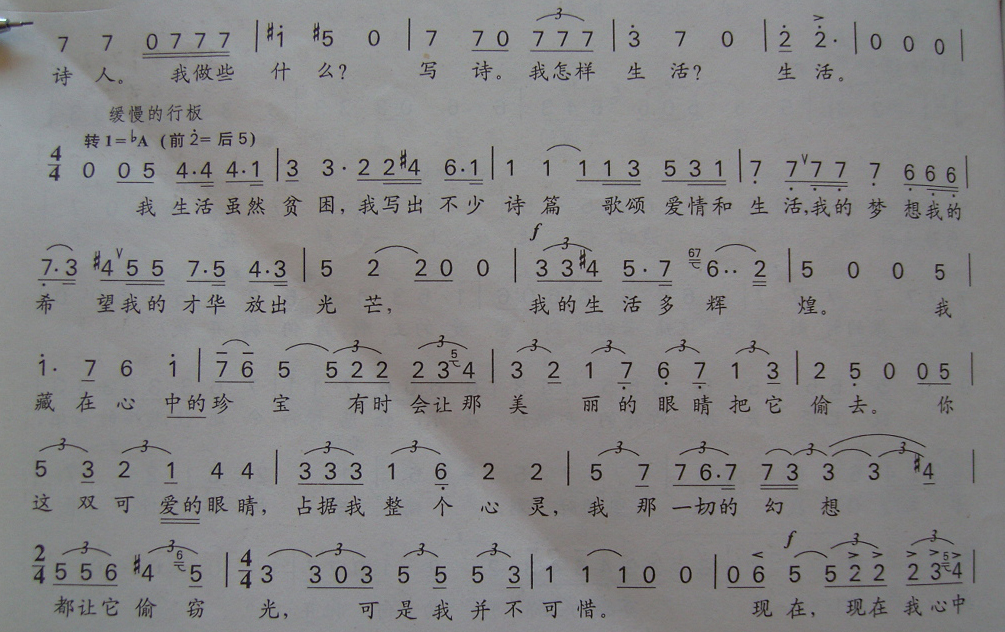 7 7 0 7 7 7 | #i #5 0 | 7 7 0 7 7 7 | 3 7 0 | 2 2· | 0 0 0 |
诗 人。 我做些 什 么? 写 诗。 我怎样 生 活? 生 活。
缓慢的行板
转1=♭A (前2=后5)
4/4 0 0 5 4·4 4·1 | 3 3·2 2 #4 6·1 | 1 1 1 1 3 5 3 1 | 7 7 ∨ 7 7 7 6 6 6 |
我 生活 虽然 贫 困, 我写出 不少 诗 篇 歌颂 爱情和 生 活,我的 梦 想我的
f
7·3 #4 ∨ 5 5 7·5 4·3 | 5 2 2 0 0 | 3 3 #4 5·7 67 6·· 2 | 5 0 0 5 |
希 望我的 才华 放出 光 芒, 我的生活多 辉 煌。 我
1· 7 6 1 | 7 6 5 5 2 2 2 3 5 4 | 3 2 1 7 6 7 1 3 | 2 5 0 0 5 |
藏 在 心 中的 珍 宝 有时 会让那 美 丽 的 眼 睛 把 它 偷 去。 你
5 3 2 1 4 4 | 3 3 3 1 6 2 2 | 5 7 7 6·7 7 3 3 3 #4 |
这 双 可 爱的 眼 睛, 占据我 整 个 心 灵, 我 那 一切的 幻 想
f
2/4 5 5 6 #4 6 5 | 4/4 3 3 0 3 5 5 5 3 | 1 1 1 0 0 | 0 6 5 5 2 2 2 3 5 4 |
都让它 偷 窃 光, 可 是 我 并 不 可 惜。 现 在, 现在 我心中